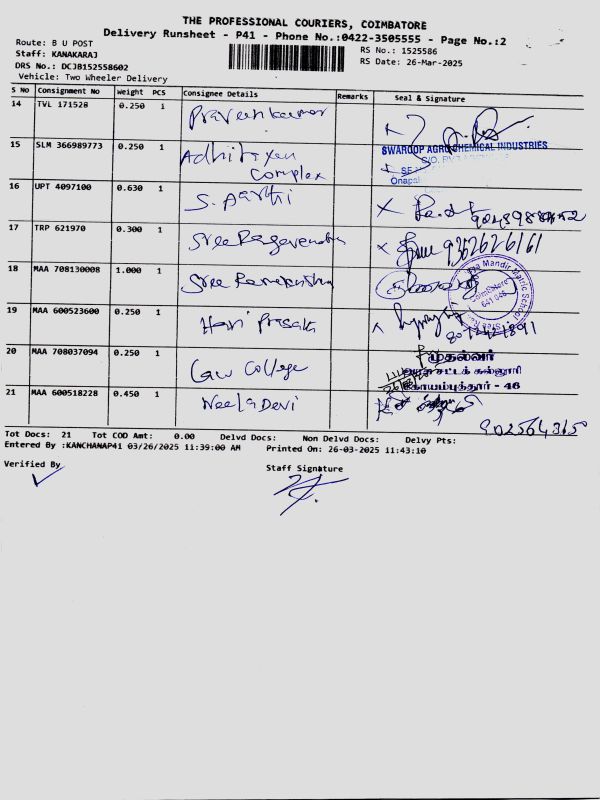 THE PROFESSIONAL COURIERS, COIMBATORE
Delivery Runsheet - P41 - Phone No.:0422-3505555 - Page No.:2
Route: B U POST
Staff: KANAKARAJ
DRS No.: DCJB152558602
Vehicle: Two Wheeler Delivery
RS No.: 1525586
RS Date: 26-Mar-2025
S No Consignment No Weight PCS Consignee Details Remarks Seal & Signature
14 TVL 171528 0.250 1 Praveenkumar
15 SLM 366989773 0.250 1 Adhitiyen Complex
SWAROOP AGROCHEMICAL INDUSTRIES
16 UPT 4097100 0.630 1 S. Aarthi
17 TRP 621970 0.300 1 Sree Ragavendra 9352626161
18 MAA 708130008 1.000 1 Sree Ramakrishna
The Mandir Matric School
Coimbatore
641 046
19 MAA 600523600 0.250 1 Hari Prasath
20 MAA 708037094 0.250 1 Law College
முதல்வர்
அரசு சட்டக் கல்லூரி
கோயம்புத்தூர் - 46
21 MAA 600518228 0.450 1 Neela Devi
Tot Docs: 21 Tot COD Amt: 0.00 Delvd Docs: Non Delvd Docs: Delvy Pts:
Entered By :KANCHANAP41 03/26/2025 11:39:00 AM Printed On: 26-03-2025 11:43:10
Verified By
Staff Signature